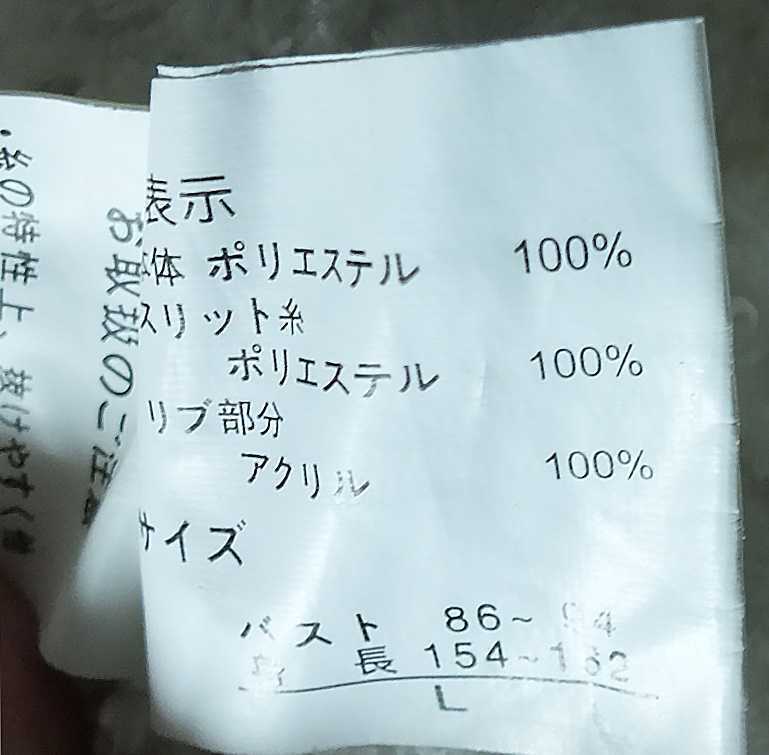 表示
体 ポリエステル 100%
スリット糸
ポリエステル 100%
リブ部分
アクリル 100%
サイズ
バスト 86~94
身長 154~162
L
お取扱のご注
・糸の特性上、抜けやすく